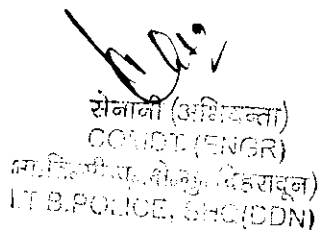 सेनानी (अभियन्ता)
COMDT. (ENGR)
देहरादून)
I.T.B.POLICE, SHQ(DDN)